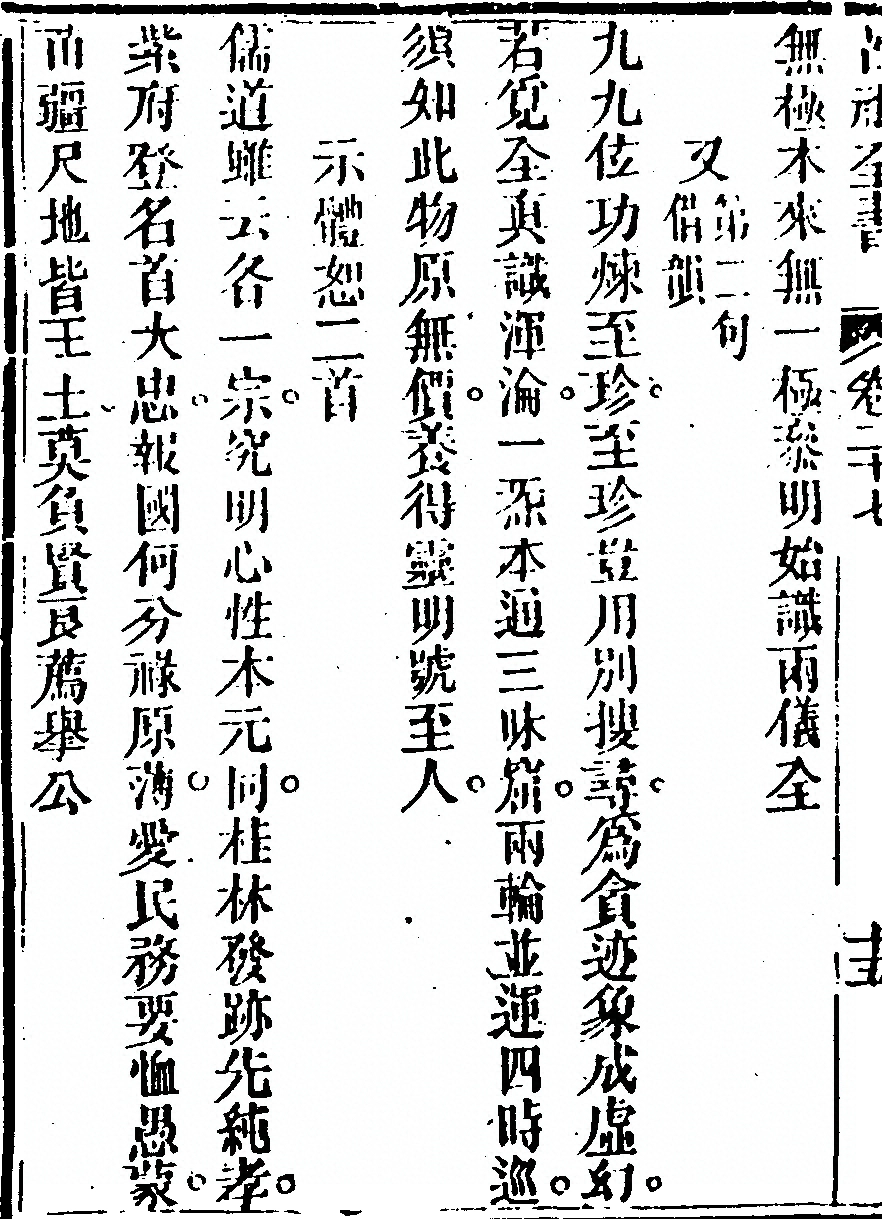 全書 卷二十七
無極本來無一極叅明始識兩儀全
又 第二句
借韻
九九位功煉至珍。至珍豈用別搜尋。為貪迹象成虛幻。
若覓全真識渾淪。一炁本通三昧窟。兩輪並運四時巡。
須如此物原無價。養得靈明號至人。
示體恕二首
儒道雖云各一宗。究明心性本元同。桂林發跡先純孝。
紫府登名首大忠。報國何分祿原薄。愛民務要恤愚蒙。
西疆尺地皆王土。莫負賢良薦舉公